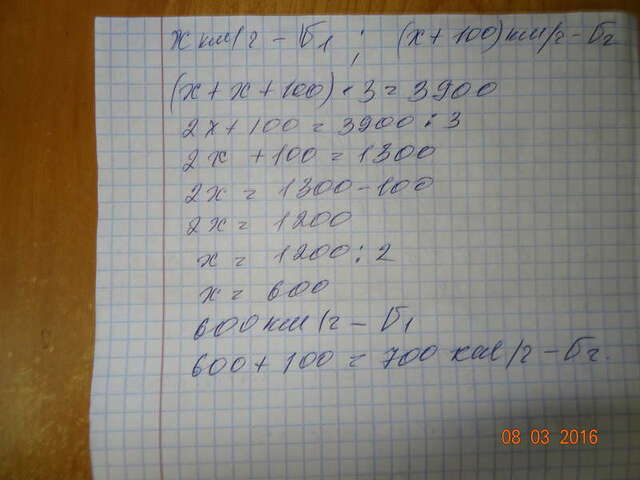 x км/г - v1 ; (x + 100) км/г - v2
(x + x + 100) · 3 = 3900
2x + 100 = 3900 : 3
2x + 100 = 1300
2x = 1300 - 100
2x = 1200
x = 1200 : 2
x = 600
600 км/г - v1
600 + 100 = 700 км/г - v2.
08 03 2016